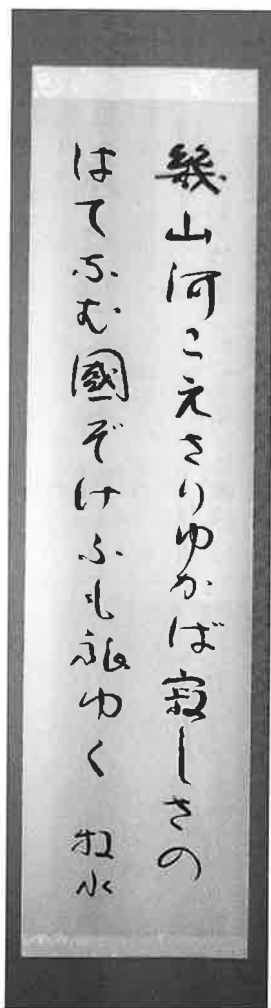 幾山河こえさりゆかば寂しさの
はてなむ國ぞけふも旅ゆく 牧水